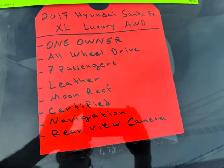 2017 Hyundai Santa Fe
XL Luxury AWD
- ONE OWNER
- All Wheel Drive
- 7 Passengers
- Leather
- Moon Roof
- Certified
- Navigation
- Rear view Camera